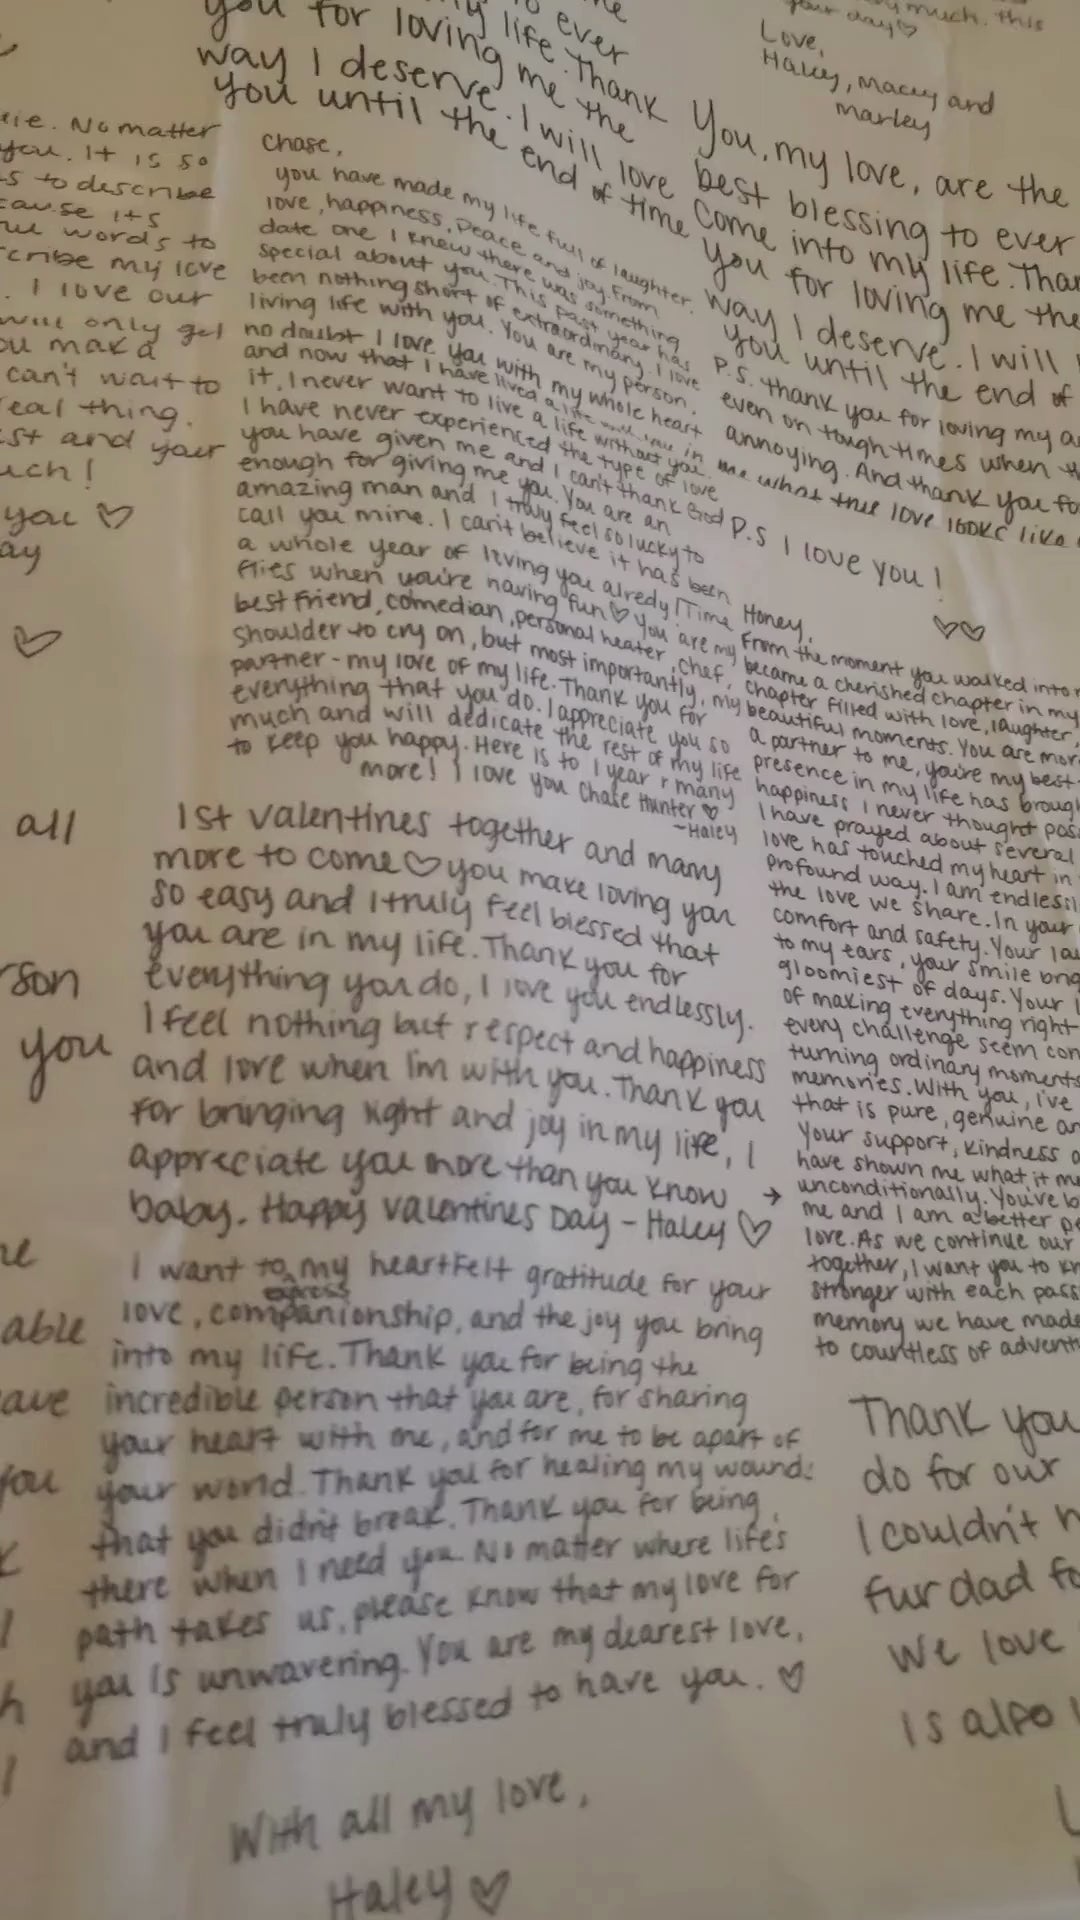 your day♡
Love,
Haley, Macey and
Marley
to ever
my life. Thank
you for loving me the
way I deserve. I will love
you until the end of time
ie. No matter
you. It is so
s to describe
cause its
words to
cribe my love
. I love our
will only get
ou make
can't wait to
real thing.
st and your
uch!
you ♡
ay
♡
Chase,
you have made my life full of laughter,
love, happiness, peace and joy. From
date one I knew there was something
special about you. This past year has
been nothing short of extraordinary. I love
living life with you. You are my person,
no doubt I love you with my whole heart
and now that I have lived a life with you in
it, I never want to live a life without you.
I have never experienced the type of love
you have given me and I can't thank God
enough for giving me you. You are an
amazing man and I truly feel so lucky to
call you mine. I can't believe it has been
a whole year of loving you alredy! Time
flies when you're having fun♡ you are my
best friend, comedian, personal heater, chef,
shoulder to cry on, but most importantly, my
partner - my love of my life. Thank you for
everything that you do. I appreciate you so
much and will dedicate the rest of my life
to keep you happy. Here is to 1 year + many
more! I love you Chase Hunter ♡
-Haley
You, my love, are the
best blessing to ever
come into my life. Than
you for loving me the
way I deserve. I will
you until the end of
P.S. thank you for loving my a
even on tough times when th
annoying. And thank you fo
me what true love looks like
P.S I love you!
♡♡
Honey,
From the moment you walked into
became a cherished chapter in my
chapter filled with love, laughter,
beautiful moments. You are mor
a partner to me, you're my best
presence in my life has brough
happiness I never thought pos
I have prayed about several
love has touched my heart in
profound way. I am endlessl
the love we share. In your
comfort and safety. Your lau
to my ears, your smile brig
gloomiest of days. Your
of making everything right
every challenge seem con
turning ordinary moments
memories. With you, I've
that is pure, genuine an
Your support, kindness a
have shown me what it me
→ unconditionally. You've b
me and I am a better pe
love. As we continue our
together, I want you to kn
stronger with each pass
memory we have made
to countless of advent
all
rson
you
able
ave
you
1st Valentines together and many
more to come♡ you make loving you
so easy and I truly feel blessed that
you are in my life. Thank you for
everything you do, I love you endlessly.
I feel nothing but respect and happiness
and love when I'm with you. Thank you
for bringing light and joy in my life, I
appreciate you more than you know
baby. Happy Valentines Day - Haley ♡
I want to express my heartfelt gratitude for your
love, companionship, and the joy you bring
into my life. Thank you for being the
incredible person that you are, for sharing
your heart with me, and for me to be apart of
your world. Thank you for healing my wounds
that you didn't break. Thank you for being
there when I need you. No matter where life's
path takes us, please know that my love for
you is unwavering. You are my dearest love,
and I feel truly blessed to have you. ♡
With all my love,
Haley ♡
Thank you
do for our
I couldn't
fur dad fo
we love
is also